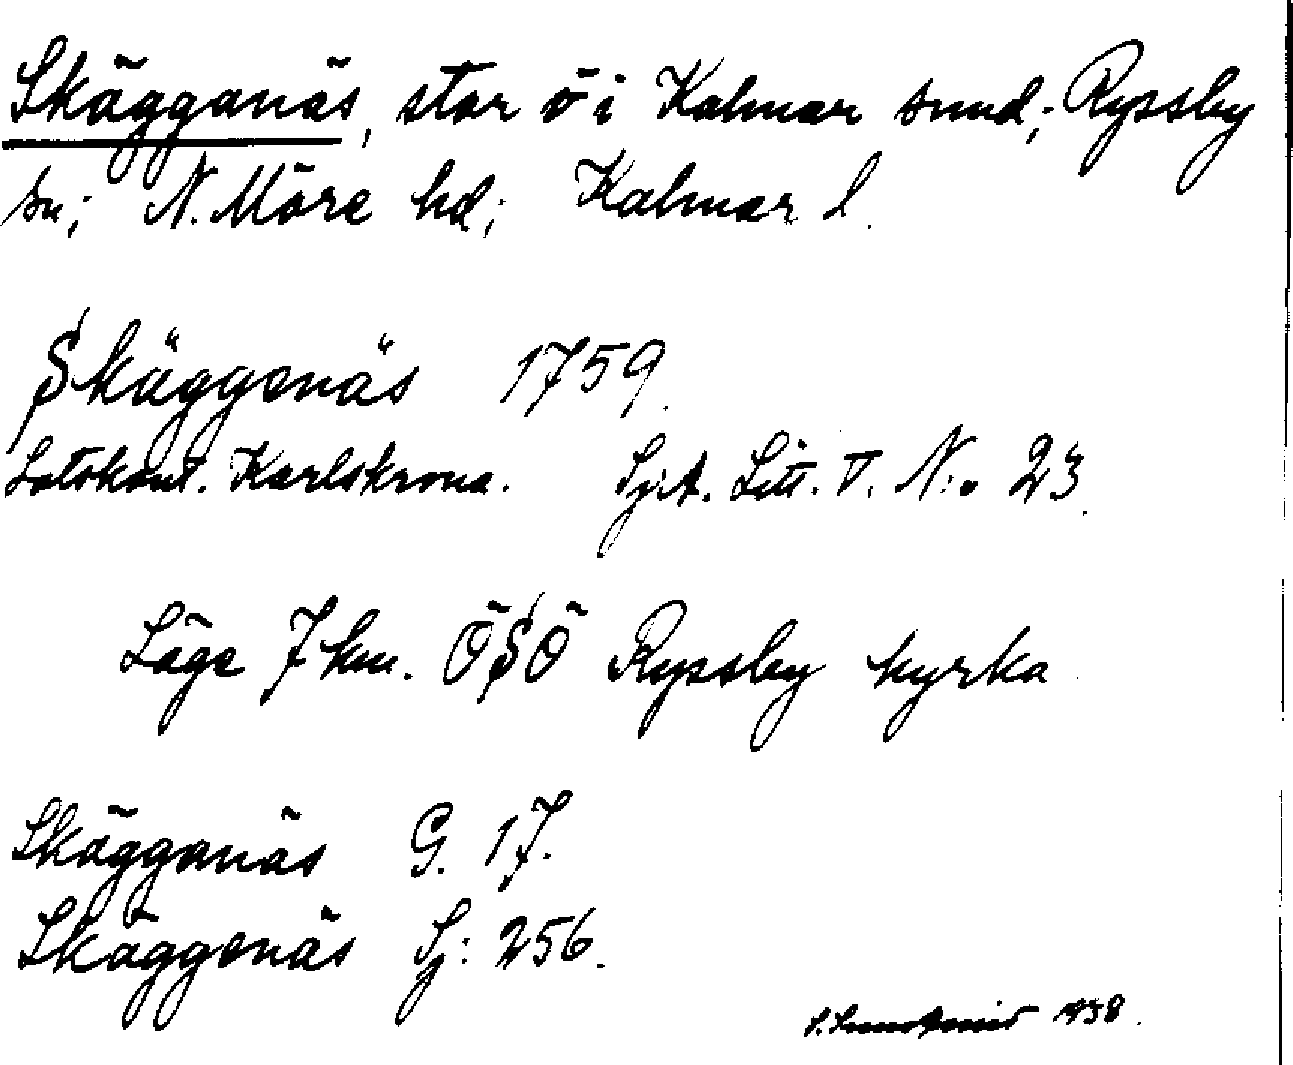 Skägganäs, stor ö i Kalmar sund; Ryssby
sn; N. Möre hd; Kalmar l.
Skäggenäs 1759.
Lotskont. Karlskrona. Sjök. Litt. V. N:o 23.
Läge 7 km. ÖSÖ Ryssby kyrka
Skägganäs G. 17.
Skäggenäs Sj: 256.
1938.